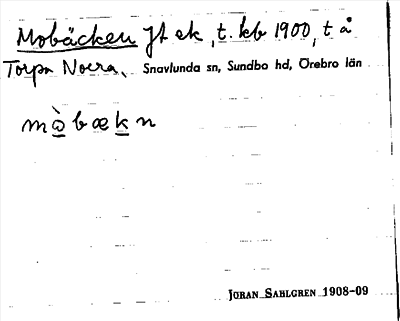 Mobäcken Jt ek, t. kb 1900, t å
Torpa Norra, Snavlunda sn, Sundbo hd, Örebro län
mò̱bæḵn
JÖRAN SAHLGREN 1908-09